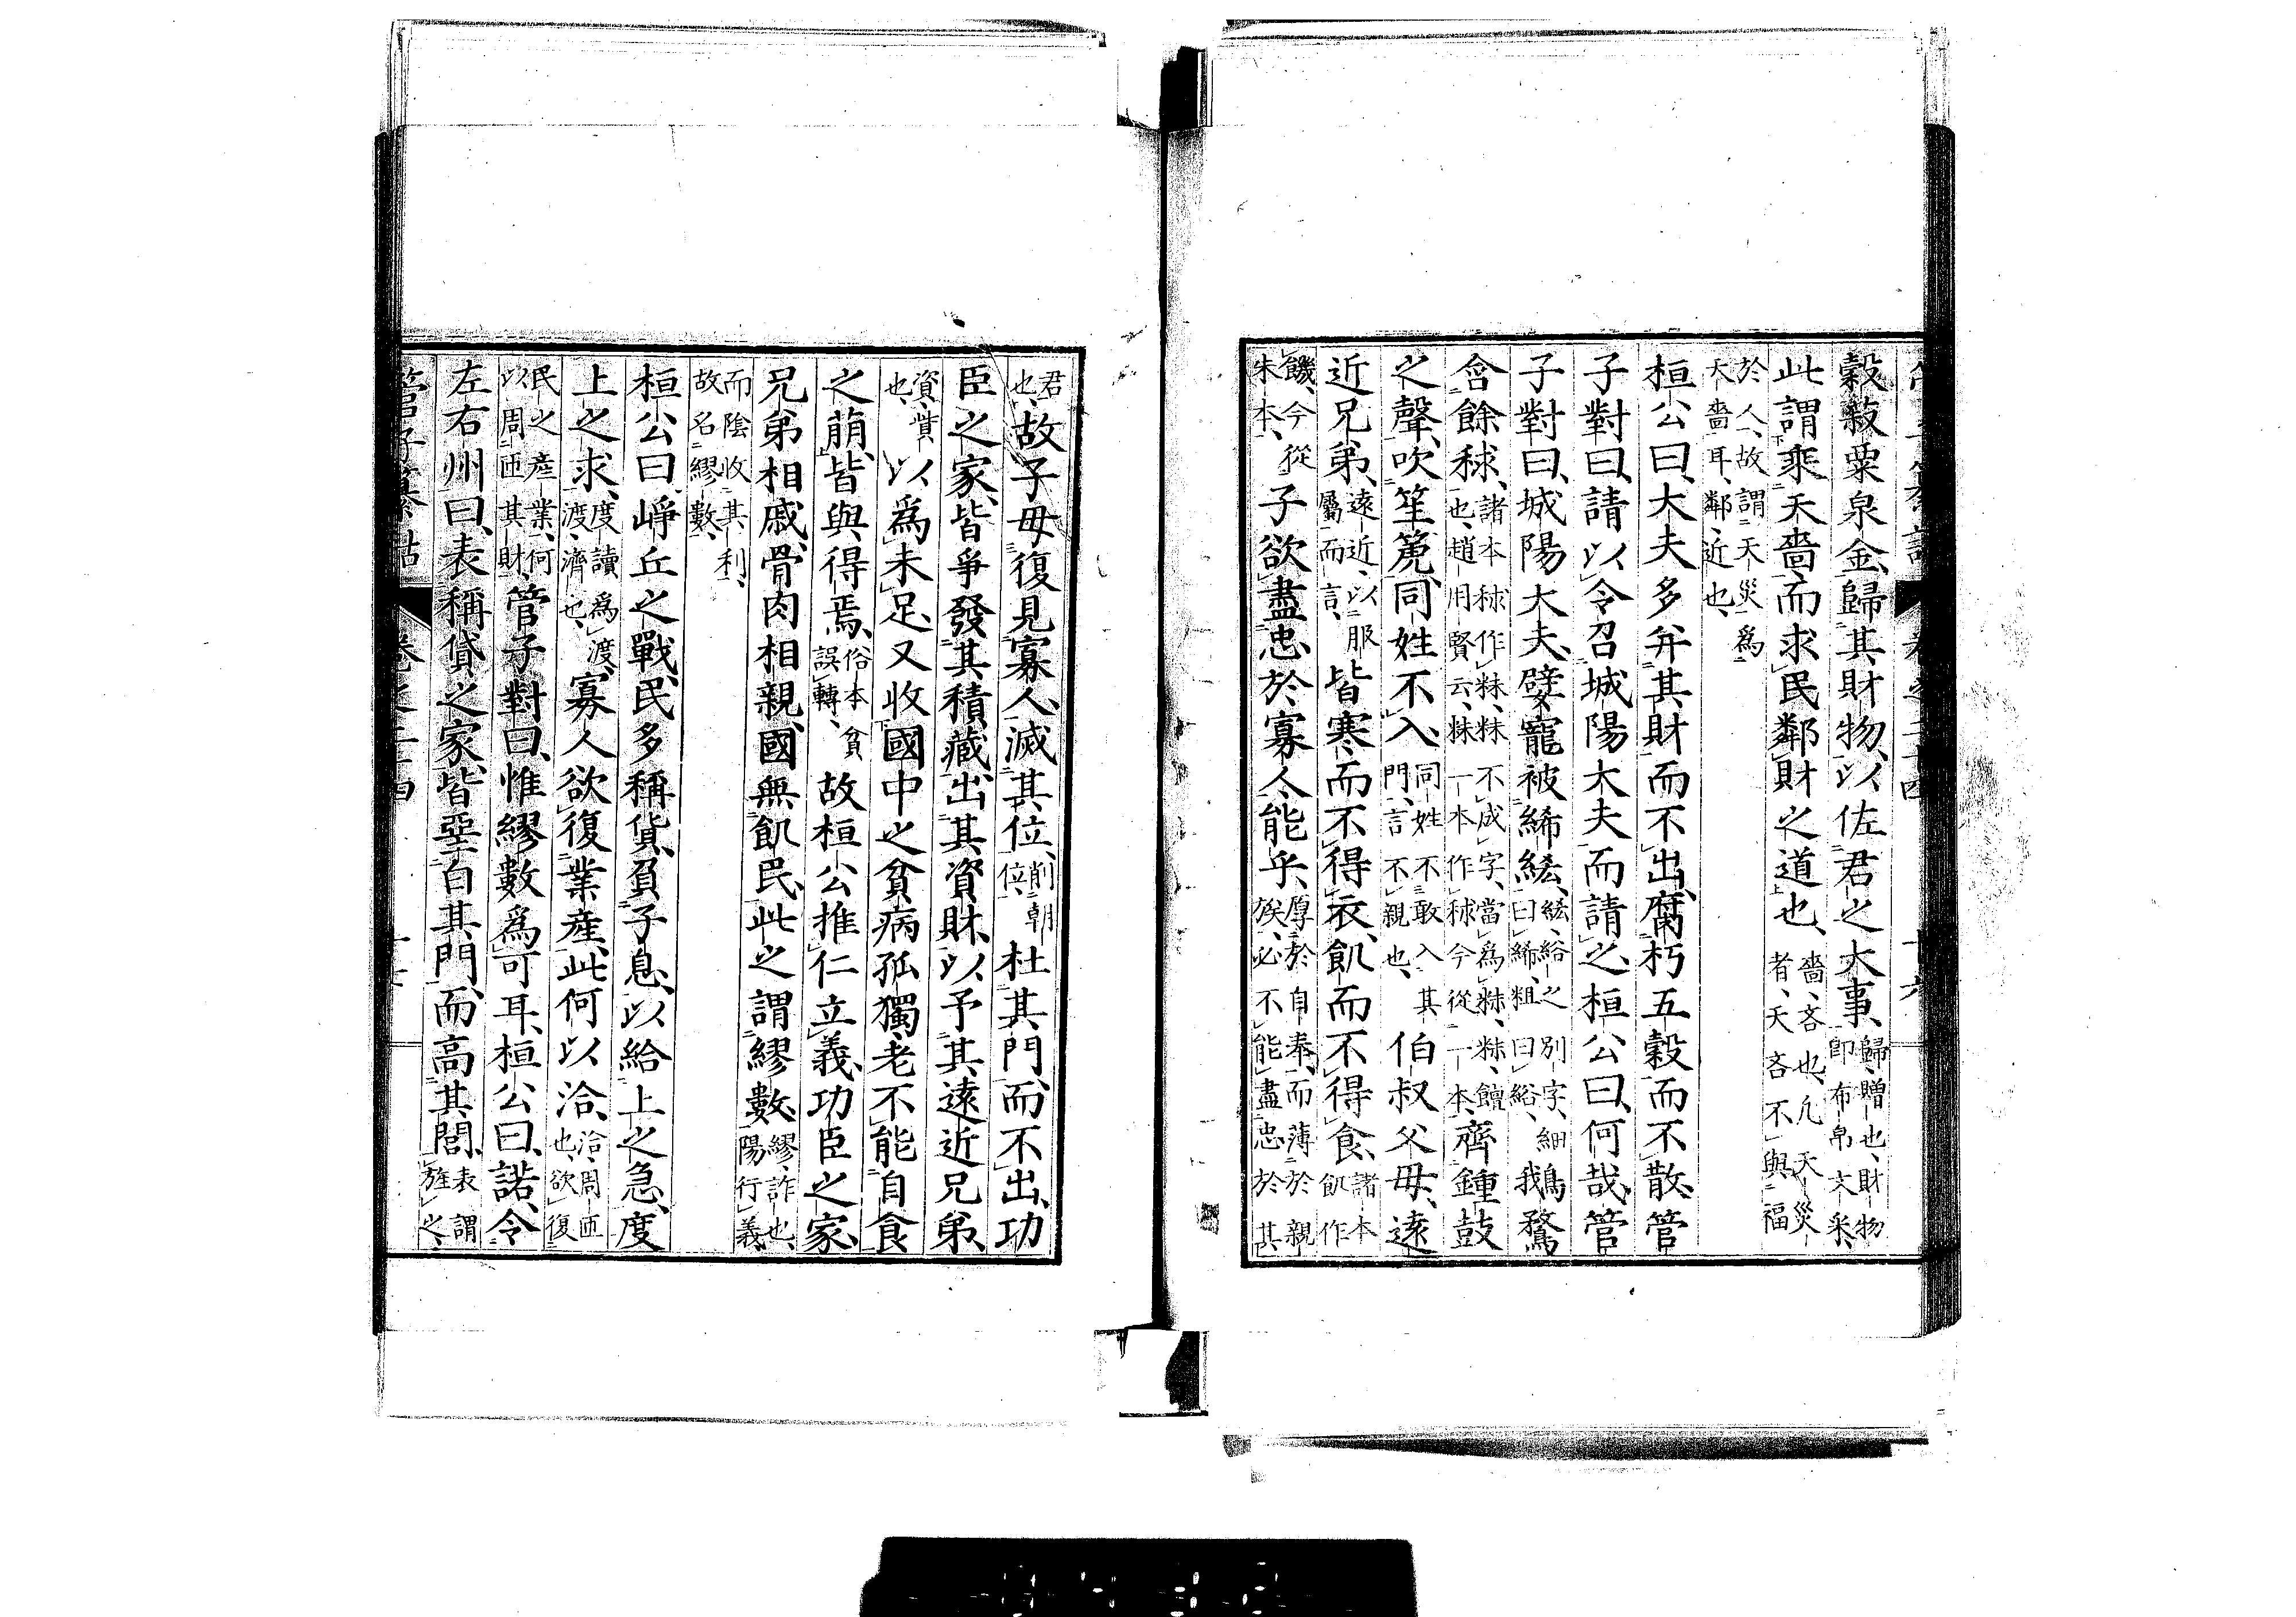 管子纂詁 卷之二十四 十六
穀菽粟泉金歸其財物、以佐君之大事、歸、贈也、財物卽布帛文采、
此謂乘天嗇而求民鄰財之道也、嗇、吝也、凡天災者、天吝不與福
於人、故謂天災爲天嗇耳、鄰、近也、
桓公曰、大夫多幷其財而不出、腐朽五穀而不散、管
子對曰、請以令召城陽大夫而請之、桓公曰、何哉、管
子對曰、城陽大夫、嬖寵被絺綌、綌、綌之別字、細曰絺、粗曰綌、鵝鶩
含餘秣、諸本秣作䊳、䊳不成字、當爲䊳、䊳、饘也、趙用賢云、䊳一本作秣今從一本、齊鍾鼓
之聲、吹笙篪、同姓不入、同姓不敢入其門、言不親也、伯叔父母、遠
近兄弟、遠近、以服屬而言、皆寒而不得衣、飢而不得食、諸本飢作
饑、今從朱本、子欲盡忠於寡人能乎、厚於自奉、而薄於親族、必不能盡忠於其
君也、故子毋復見寡人、滅其位、削朝位、杜其門、而不出、功
臣之家、皆爭發其積藏、出其資財、以予其遠近兄弟、
資、貲也、以爲未足、又收國中之貧病孤獨、老不能自食
之萌、皆與得焉、俗本貧誤轉、故桓公推仁立義、功臣之家、
兄弟相戚、骨肉相親、國無飢民、此之謂繆數、繆、詐也、陽行義、
而陰收其利、故名繆數、
桓公曰、崢丘之戰、民多稱貸、負子息、以給上之急、度
上之求、度讀爲渡、渡、濟也、寡人欲復業產、此何以洽、洽、周匝也、欲復
民之產業、何以周匝其財、管子對曰、惟繆數爲可耳、桓公曰、諾、令
左右州曰、表稱貸之家、皆堊白其門、而高其閭、表謂旌之、
管子纂詁 卷之二十四 十七